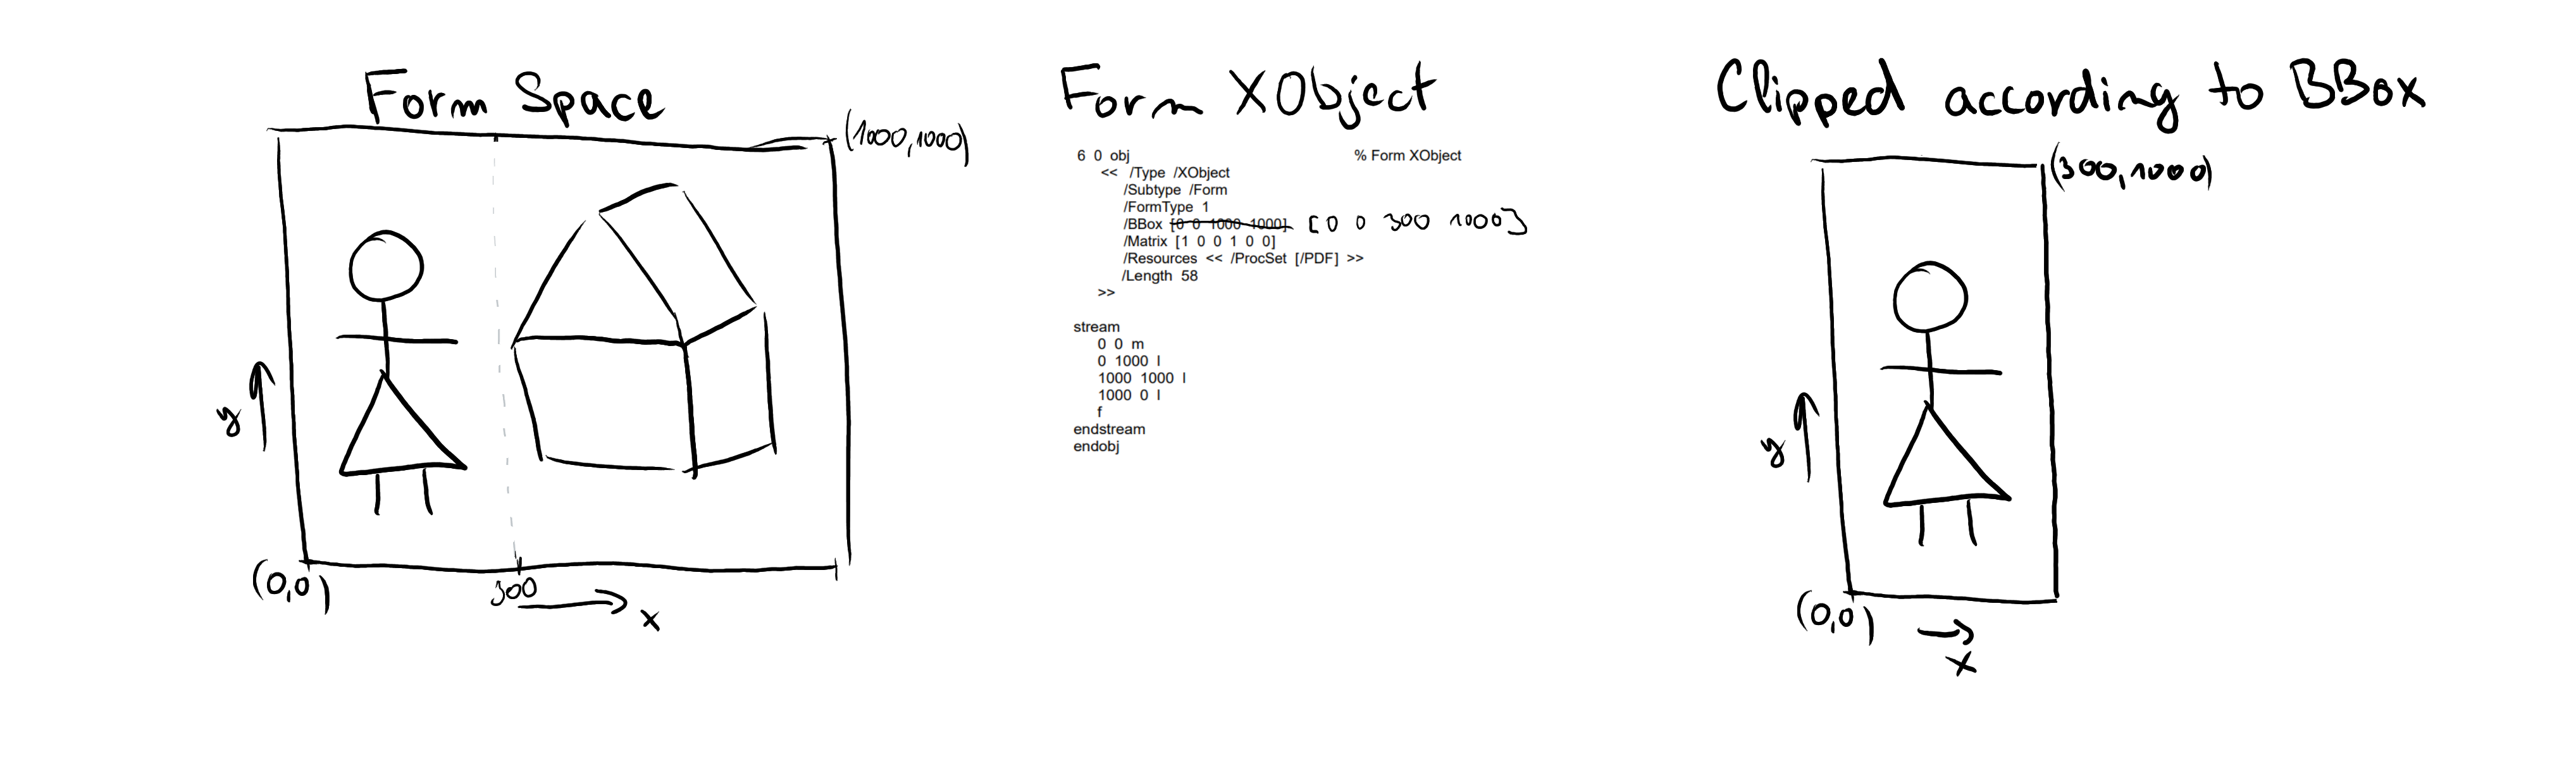 Form Space
(1000,1000)
y
(0,0)
300
x
Form XObject
6 0 obj % Form XObject
<< /Type /XObject
/Subtype /Form
/FormType 1
/BBox [0 0 1000 1000] [0 0 300 1000]
/Matrix [1 0 0 1 0 0]
/Resources << /ProcSet [/PDF] >>
/Length 58
>>
stream
0 0 m
0 1000 l
1000 1000 l
1000 0 l
f
endstream
endobj
Clipped according to BBox
(300,1000)
y
(0,0)
x